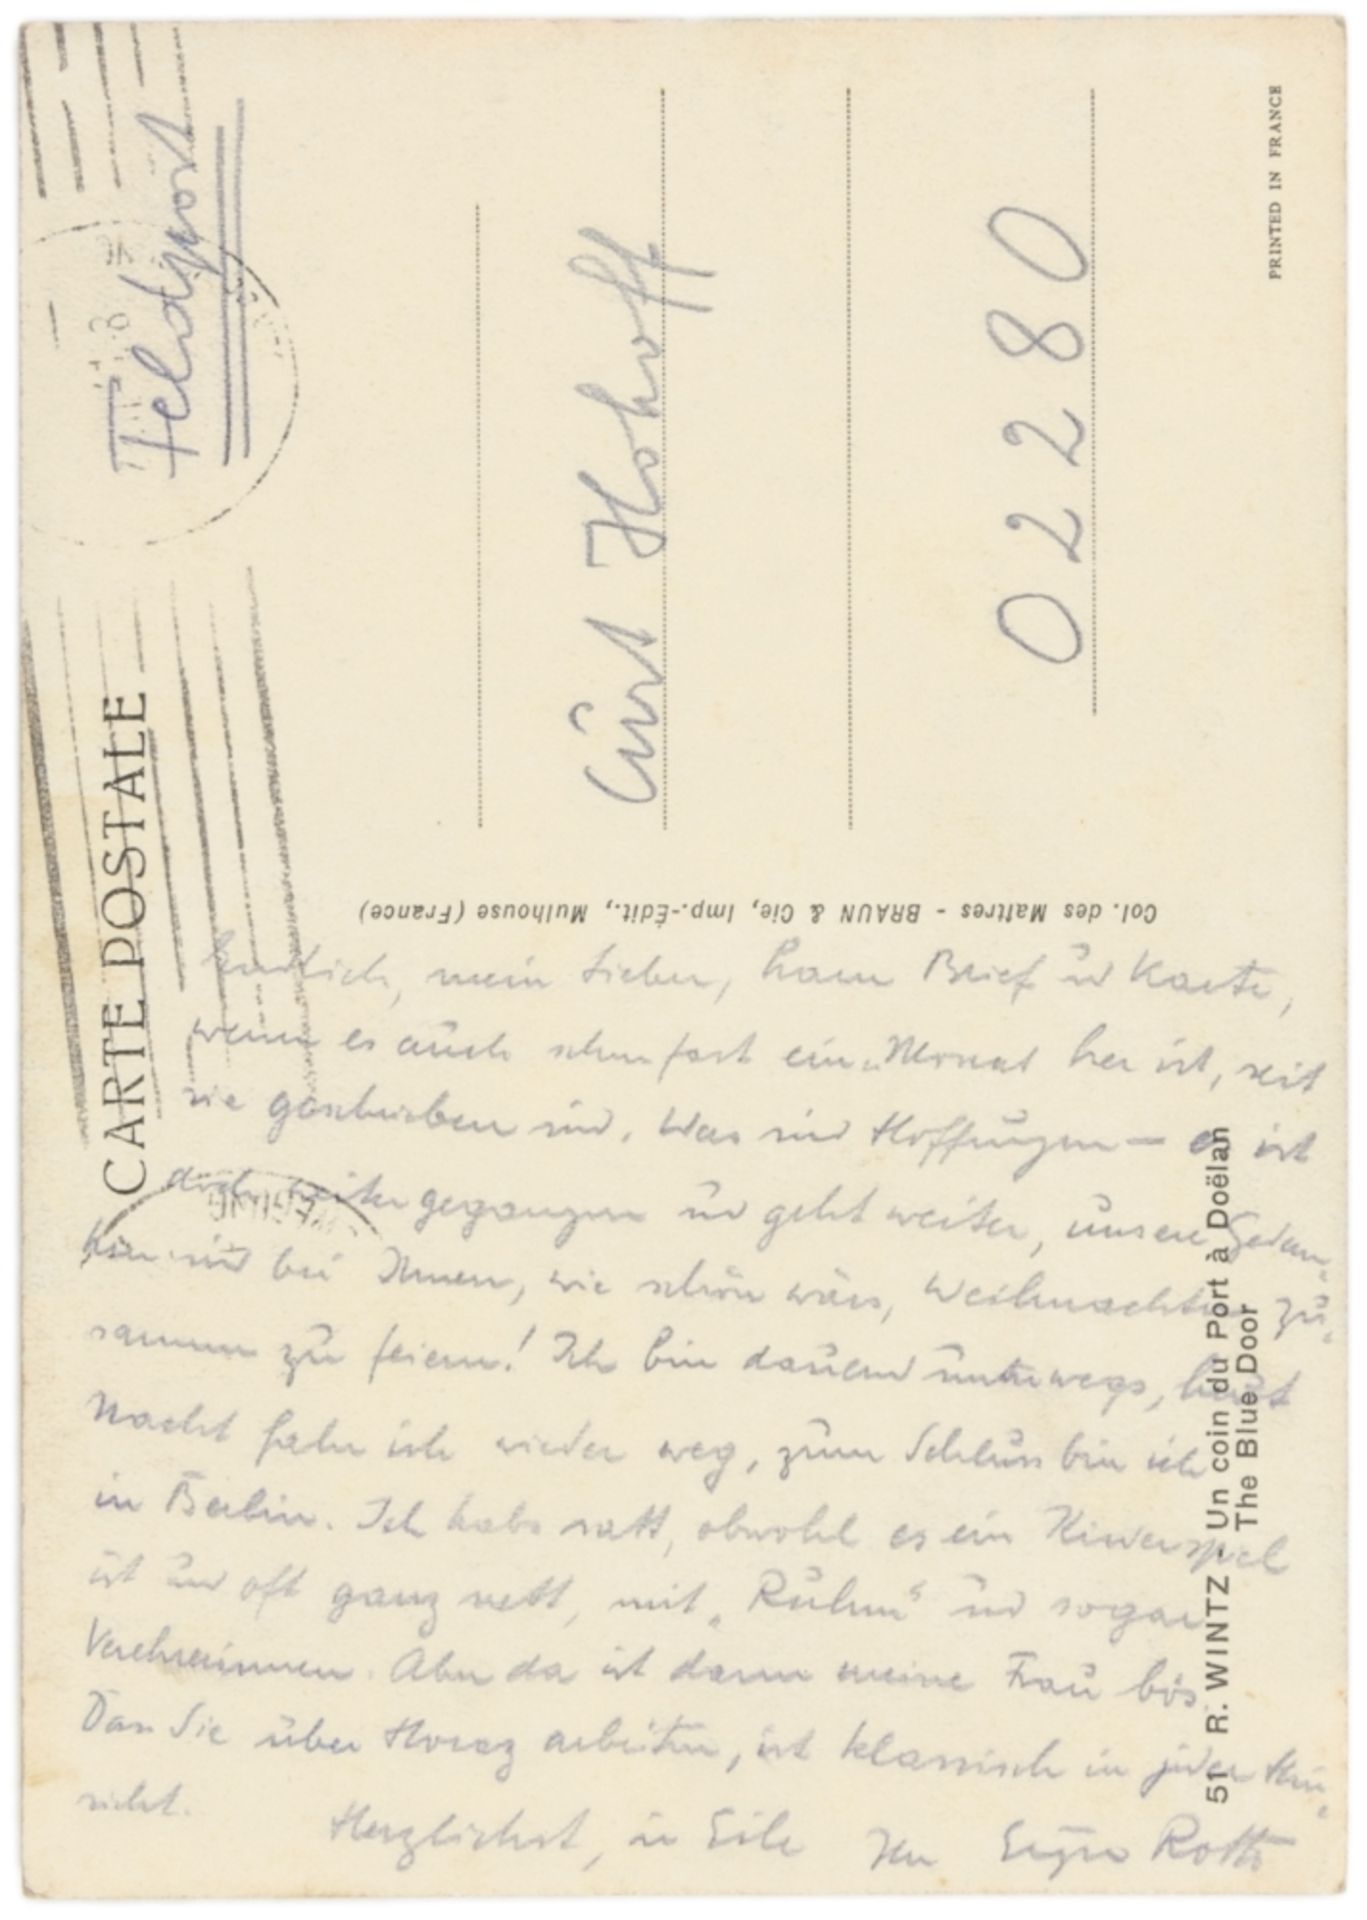 CARTE POSTALE
Feldpost
Curt Hohoff
02280
PRINTED IN FRANCE
Col. des Maîtres - BRAUN & Cie, Imp.-Édit., Mulhouse (France)
Endlich, mein Lieber, kam Brief und Karte,
wenn es auch schon fast ein Monat her ist, seit
sie geschrieben sind. Was sind Hoffnungen — es ist
doch weiter gegangen und geht weiter, unsere Gedan-
ken sind bei Ihnen, wie schön wärs, Weihnachten zu-
sammen zu feiern! Ich bin dauernd unterwegs, heut
Nacht fahr ich wieder weg, zum Schluss bin ich
in Berlin. Ich habs satt, obwohl es ein Kinderspiel
ist und oft ganz nett, mit „Ruhm“ und sogar
Verehrerinnen. Aber da ist dann meine Frau bös.
Dass Sie über Horaz arbeiten, ist klassisch in jeder Hin-
sicht.
Herzlichst, in Eile Ihr Eugen Roth
51 R. WINTZ - Un coin du Port à Doëlan
The Blue Door